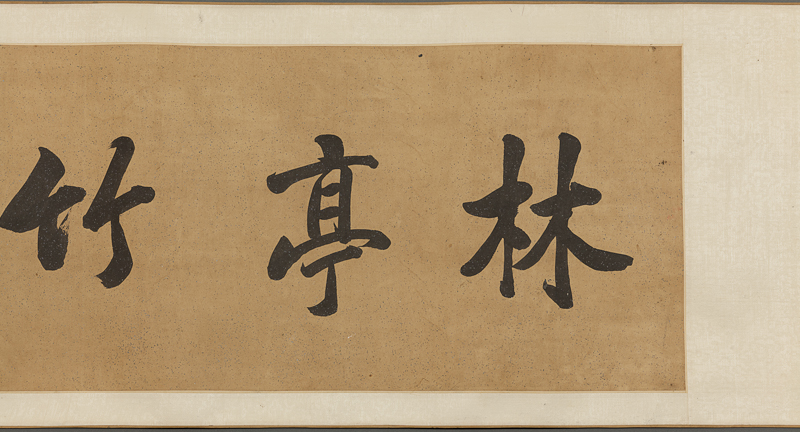 林亭竹